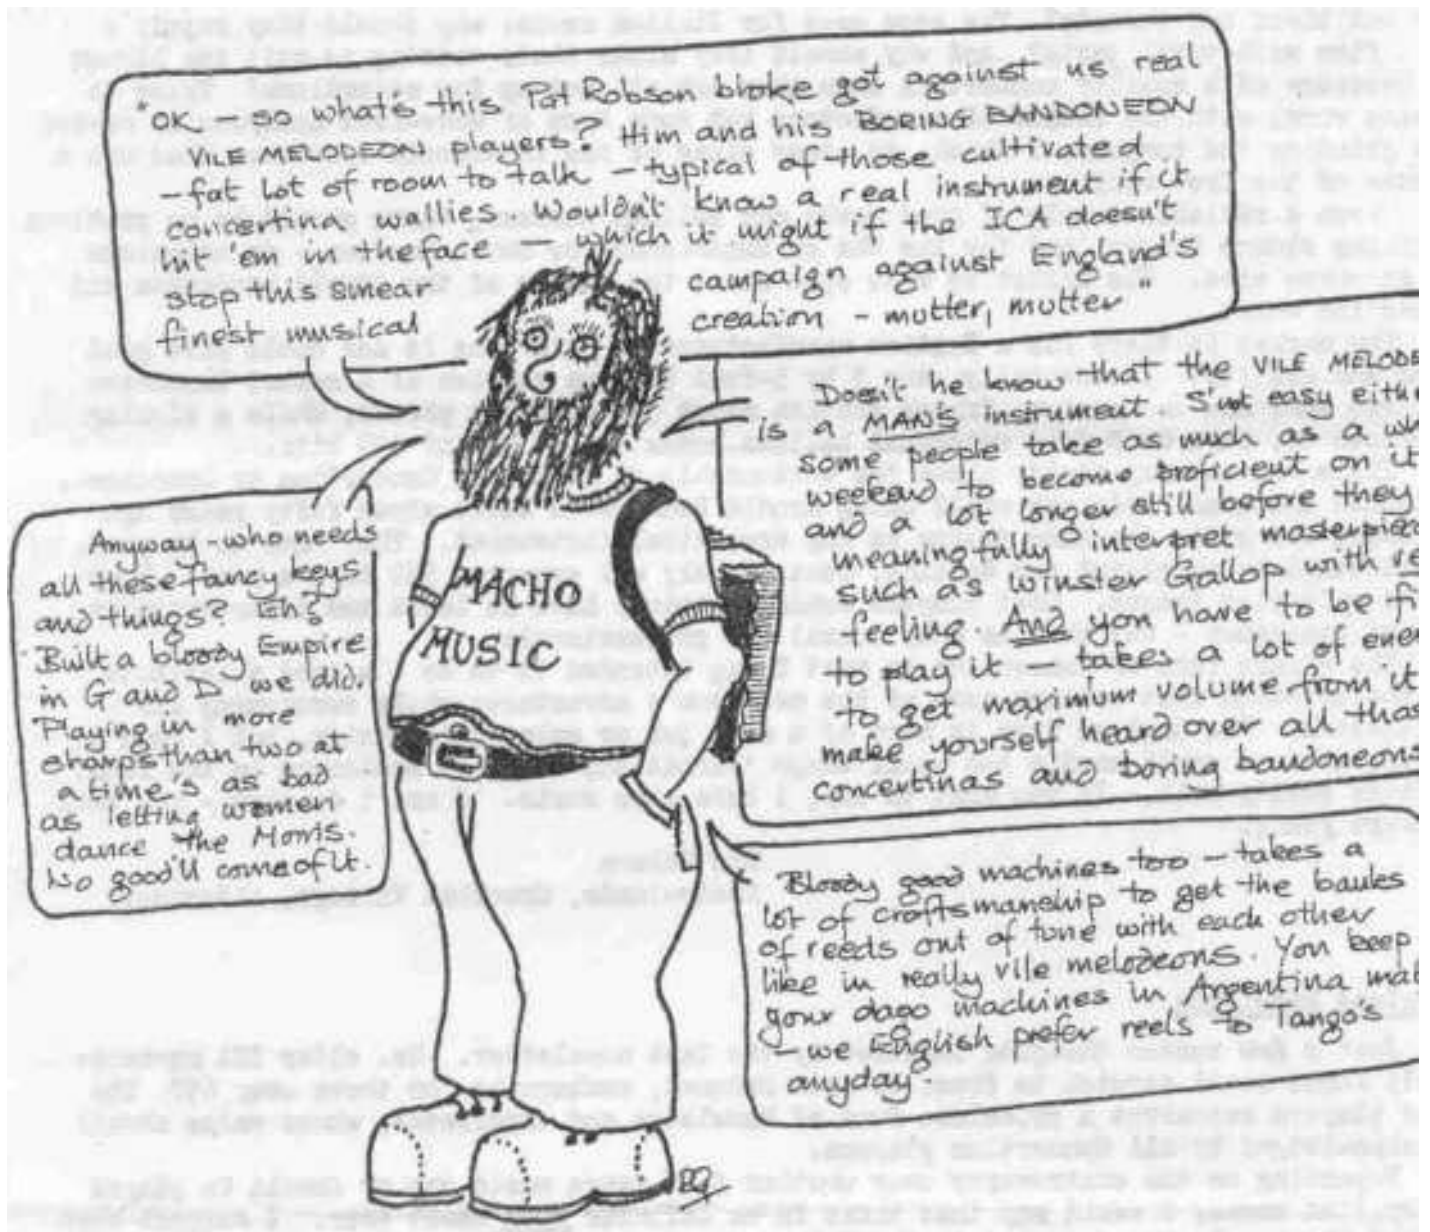 "OK - so what's this Pat Robson bloke got against us real
VILE MELODEON players? Him and his BORING BANDONEON
- fat lot of room to talk - typical of those cultivated
concertina wallies. Wouldn't know a real instrument if it
hit 'em in the face - which it might if the ICA doesn't
stop this smear campaign against England's
finest musical creation - mutter, mutter"
Doesn't he know that the VILE MELODE
is a MAN'S instrument. S'not easy eithe
some people take as much as a wh
weekend to become proficient on it
and a lot longer still before they
meaningfully interpret masterpiec
such as Winster Gallop with re
feeling. And you have to be fi
to play it - takes a lot of ener
to get maximum volume from it
make yourself heard over all thos
concertinas and boring bandoneons
Anyway - who needs
all these fancy keys
and things? Eh?
Built a bloody Empire
in G and D we did.
Playing in more
sharps than two at
a time's as bad
as letting women
dance the Morris.
No good'll come of it.
MACHO
MUSIC
Bloody good machines too - takes a
lot of craftsmanship to get the banks
of reeds out of tune with each other
like in really vile melodeons. You keep
your dago machines in Argentina mat
- we English prefer reels to Tango's
anyday